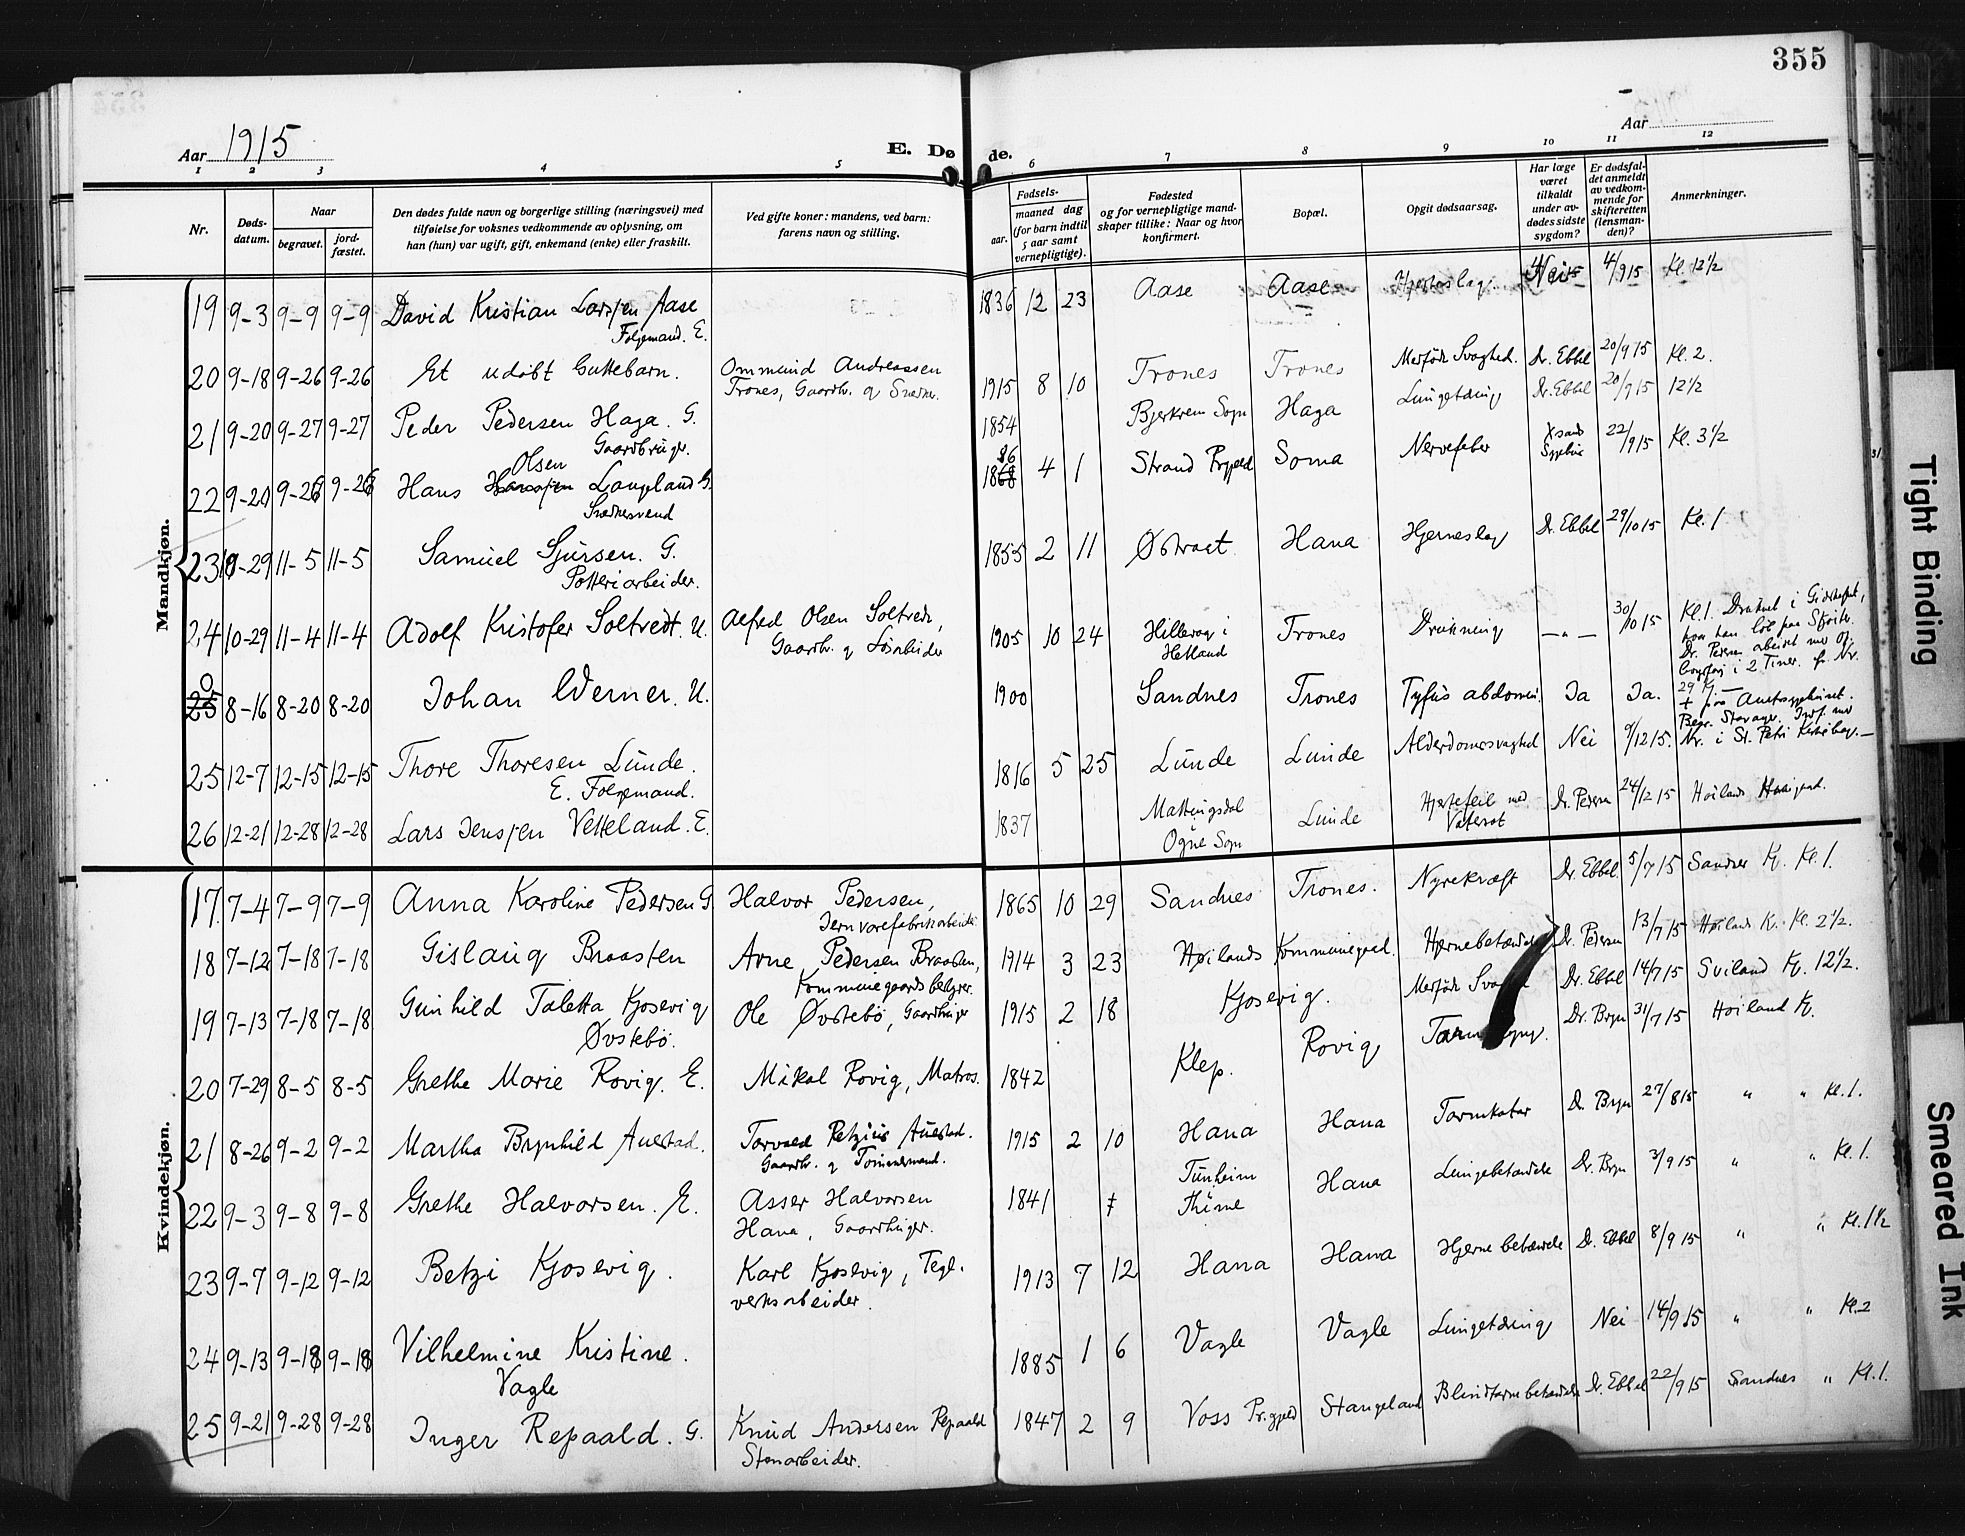 355
Aar 1915
E. Døde.
Aar
1 2 3 4 5 6 7 8 9 10 11 12
Nr.
Døds-
datum.
Naar
begravet.
jord-
fæstet.
Den dødes fulde navn og borgerlige stilling (næringsvei) med
tilføielse for voksnes vedkommende av oplysning, om
han (hun) var ugift, gift, enkemand (enke) eller fraskilt.
Ved gifte koner: mandens, ved barn:
farens navn og stilling.
Fødsels-
aar.
maaned dag
(for barn indtil
5 aar samt
vernepligtige).
Fødested
og for vernepligtige mand-
skaper tillike: Naar og hvor
konfirmert.
Bopæl.
Opgit dødsaarsag.
Har læge
været
tilkaldt
under av-
dødes sidste
sygdom?
Er dødsfal-
det anmeldt
av vedkom-
mende for
skifteretten
(lensman-
den)?
Anmerkninger.
Mandkjøn.
19 9-3 9-9 9-9 David Kristian Larssen Aase 1836 12 23 Aase Aase Hjerteslag Nei 4/9 15 Kl. 12½
Folgemand. E.
20 9-18 9-26 9-26 Et udöbt Guttebarn. Ommund Andreassen 1915 8 10 Trones Trones Medfödt Svaghed. Dr. Ebbel 20/9 15 Kl. 2.
Trones, Gaardbr. og Snedker.
21 9-20 9-27 9-27 Peder Pedersen Haga. G. 1854 Bjerkrem Sogn Haga Lungetæring Dr. Ebbel 20/9 15 12½
Gaardbruger.
Olsen 86
22 9-20 9-26 9-26 Hans Hanssen Langeland G. 1868 4 1 Strand Prgjeld Soma Nervefeber 22/9 15 Kl. 3½
Snedkersvend
23 10-29 11-5 11-5 Samuel Sjursen. G. 1855 2 11 Østraat Hana Hjerneslag Dr. Ebbel 29/10 15 Kl. 1
Potteriarbeider.
24 10-29 11-4 11-4 Adolf Kristofer Soltvedt. U. Alfred Olsen Soltvedt, 1905 10 24 Hillevag i Trones Drukning — " — 30/10 15 Kl. 1. Druknet i
Gaardbr. og Hetland
hvor han löb paa Sköiter.
Dr. Pedersen arbeidet med
i 2 Timer.
0
25 8-16 8-20 8-20 Johan Werner. U. 1900 Sandnes Trones Tyfus abdomin. Ja Ja.
+ paa Amtssygehuset.
Begr. Stavanger. Indf. med
Nr. i St. Petri Kirkebog. —
25 12-7 12-15 12-15 Thore Thoresen Lunde. 1816 5 25 Lunde Lunde Alderdomssvaghed Nei 9/12 15.
E. Folgemand.
26 12-21 12-28 12-28 Lars Jenssen Vetteland. E. 1837 Mattingsdal Lunde Hjertefeil med Dr. Pedersen 24/12 15 Höilands
Ogne Sogn Vatersot
Kvindekjøn.
17. 7-4 7-9 7-9 Anna Karoline Pedersen G Halvor Pedersen, 1865 10 29 Sandnes Trones. Nyrekræft Dr. Ebbel 5/7 15 Sandnes K. Kl. 1.
Jernvarefabrikarbeider
18 7-12 7-18 7-18 Gislaug Braasten Arne Pedersen Braasten, 1914 3 23 Høilands Kommunegaard. Hjernebetændelse Dr. Pedersen 13/7 15 Høilands K. Kl. 2½.
Kommunegaardsbestyrer.
19 7-13 7-18 7-18 Gunhild Taletta Kjosevig Ole Øvstebö, Gaardbruger 1915 2 18 Kjosevig. Medfödt Dr. Ebbel 14/7 15 Sviland K. 12½.
Øvstebö.
20 7-29 8-5 8-5 Grethe Marie Rovig. E. Mikal Rovig, Matros. 1842 Klep. Rovig Dr. Bryn 31/7 15 Höiland K.
21 8-26 9-2 9-2 Martha Brynhild Auestad. Torvald Petzius Auestad. 1915 2 10 Hana Hana Tarmkatar Dr. Bryn 27/8 15 " " Kl. 1.
Gaardbr. og Tömmermand.
22 9-3 9-8 9-8 Grethe Halvorsen. E. Asser Halvorsen 1841 Tunheim Hana Lungebetændelse Dr. Bryn 3/9 15 " " Kl. 1.
Hana, Gaardbruger. Thime
23 9-7 9-12 9-12 Betzi Kjosevig. Karl Kjosevig, Tegl- 1913 7 12 Hana Hana Hjernebetændelse Dr. Ebbel 8/9 15 " " Kl. 1½
verksarbeider.
24 9-13 9-18 9-18 Vilhelmine Kristine. 1885 1 6 Vagle Vagle Lungetæring Nei 14/9 15 " " Kl. 2
Vagle
25 9-21 9-28 9-28 Inger Repaald. G. Knud Andersen Repaald 1847 2 9 Voss Prgjeld Stangeland Blindtarmbetændelse Dr. Ebbel 22/9 15 Sandnes " Kl. 1.
Stenarbeider.
Tight Binding
Smeared Ink